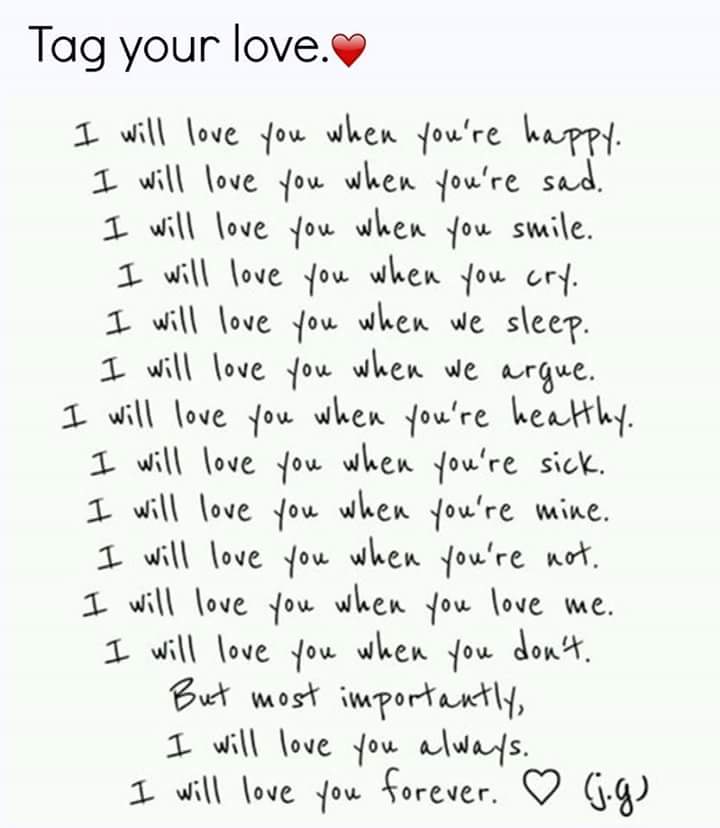 Tag your love.❤️
I will love you when you're happy.
I will love you when you're sad.
I will love you when you smile.
I will love you when you cry.
I will love you when we sleep.
I will love you when we argue.
I will love you when you're healthy.
I will love you when you're sick.
I will love you when you're mine.
I will love you when you're not.
I will love you when you love me.
I will love you when you don't.
But most importantly,
I will love you always.
I will love you forever. ♡ (j.g)